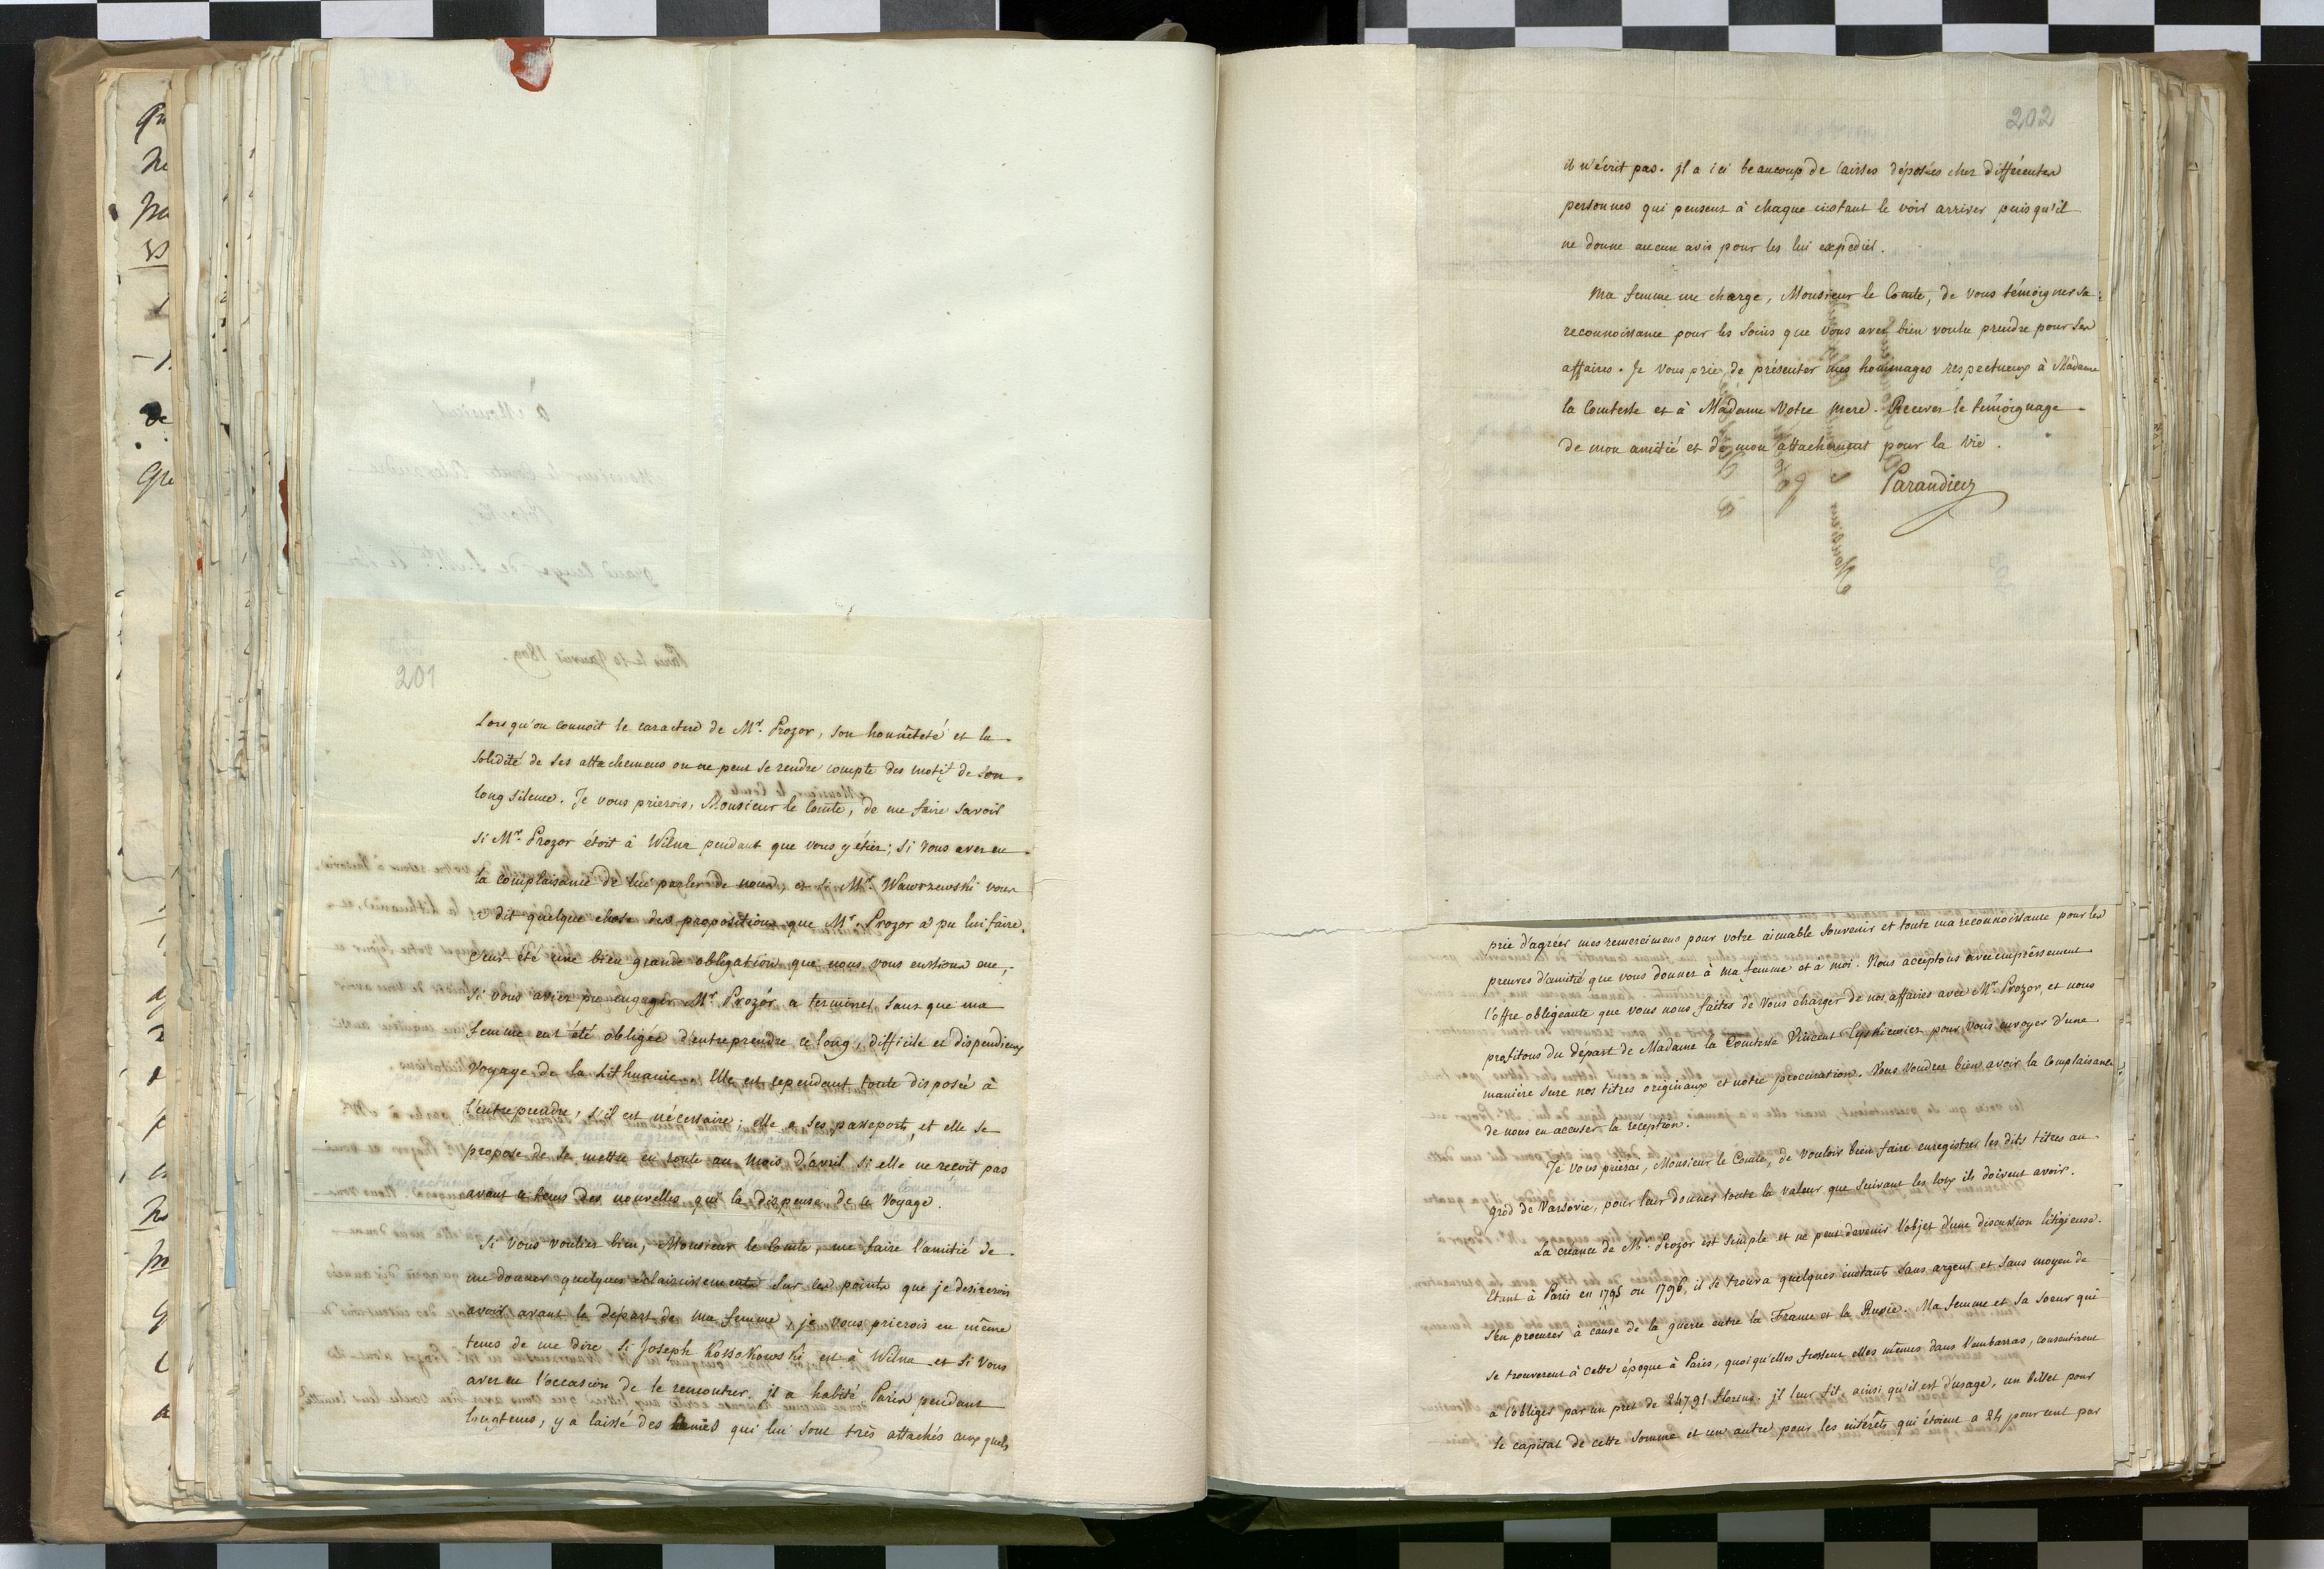 201
Lorsqu'on connoit le caractere de Mr. Prozor, son honnêteté et la
solidité de ses attachemens on ne peut se rendre compte des motif de son
long silence. Je vous prierois, Monsieur le Comte, de me faire savoir
si Mr. Prozor étoit à Wilna pendant que vous y étiez; si vous avez eu
la complaisance de lui parler de nous, et si Mr. Wawrzewski vous
a dit quelque chose des propositions que Mr. Prozor a pu lui faire.
C'eut été une bien grande obligation que nous vous eussions eue,
si vous aviez pu engager Mr. Prozor a terminer, sans que ma
femme eut été obligée d'entreprendre ce long, difficile et dispendieux
voyage de la Lithuanie. Elle est cependant toute disposée à
l'entreprendre, s'il est nécessaire; elle a ses passeports, et elle se
propose de se mettre en route au mois d'avril si elle ne reçoit pas
avant ce tems des nouvelles qui la dispense de ce voyage.
Si vous vouliez bien, Monsieur le Comte, me faire l'amitié de
me donner quelques éclaircissements sur les points que je desirerois
avoir avant le départ de ma femme, je vous prierois en même
tems de me dire si Joseph Kossakowski est à Wilna et si vous
avez eu l'occasion de le rencontrer. jl a habité Paris pendant
longtems, y a laissé des amis qui lui sont très attachés auxquels
202
il n'écrit pas. jl a ici beaucoup de caisses déposées chez différentes
personnes qui pensent à chaque instant le voir arriver puisqu'il
ne donne aucun avis pour les lui expedier.
Ma femme me charge, Monsieur le Comte, de vous témoigner sa
reconnoissance pour les soins que vous avez bien voulu prendre pour ses
affaires. Je vous prie, de présenter mes hommages respectueux à Madame
la Comtesse et à Madame Votre mere. Recevez le témoignage
de mon amitié et de mon attachement pour la vie.
Parandier
prie d'agréer mes remercimens pour votre aimable souvenir et toute ma reconnoissance pour les
preuves d'amitié que vous donnez à ma femme et à moi. Nous acceptons avec empressement
l'offre obligeante que vous nous faites de vous charger de nos affaires avec Mr. Prozor, et nous
profitons du départ de Madame la Comtesse Vincent Tyskiewicz pour vous envoyer d'une
manière sure nos titres originaux et notre procuration. Vous voudrez bien avoir la complaisance
de nous en accuser la reception.
Je vous prierai, Monsieur le Comte, de vouloir bien faire enregistrer les dits titres au
grod de Varsovie, pour leur donner toute la valeur que suivant les loix ils doivent avoir.
La créance de Mr. Prozor est simple et ne peut devenir l'objet d'une discussion litigieuse.
Etant à Paris en 1795 ou 1796, il se trouva quelques instants sans argent et sans moyen de
s'en procurer à cause de la guerre entre la France et la Russie. Ma femme et sa soeur qui
se trouverent à cette époque à Paris, quoiqu'elles fussent elles mêmes dans l'embarras, consentirent
à l'obliger par un pret de 24791 florins. jl leur fit, ainsi qu'il est d'usage, un billet pour
le capital de cette somme et un autre pour les intérêts qui étoient a 24 pour cent par